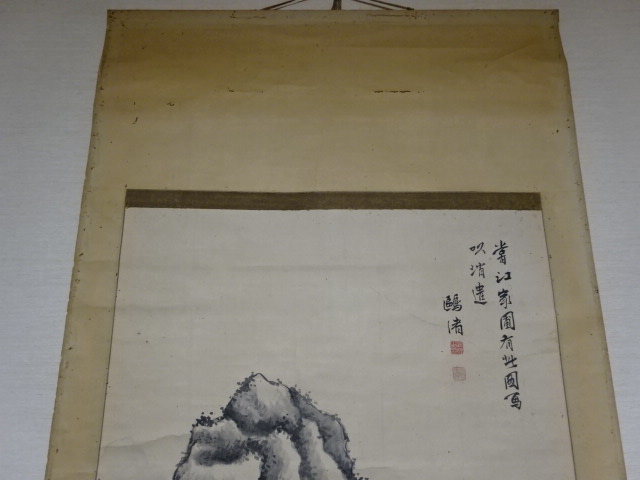 嘗江家園有此図写
以消遣
鷗渚